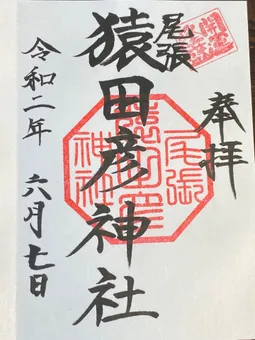 奉拝
尾張
猿田彦神社
令和二年 六月七日
尾張
猿田彦
神社